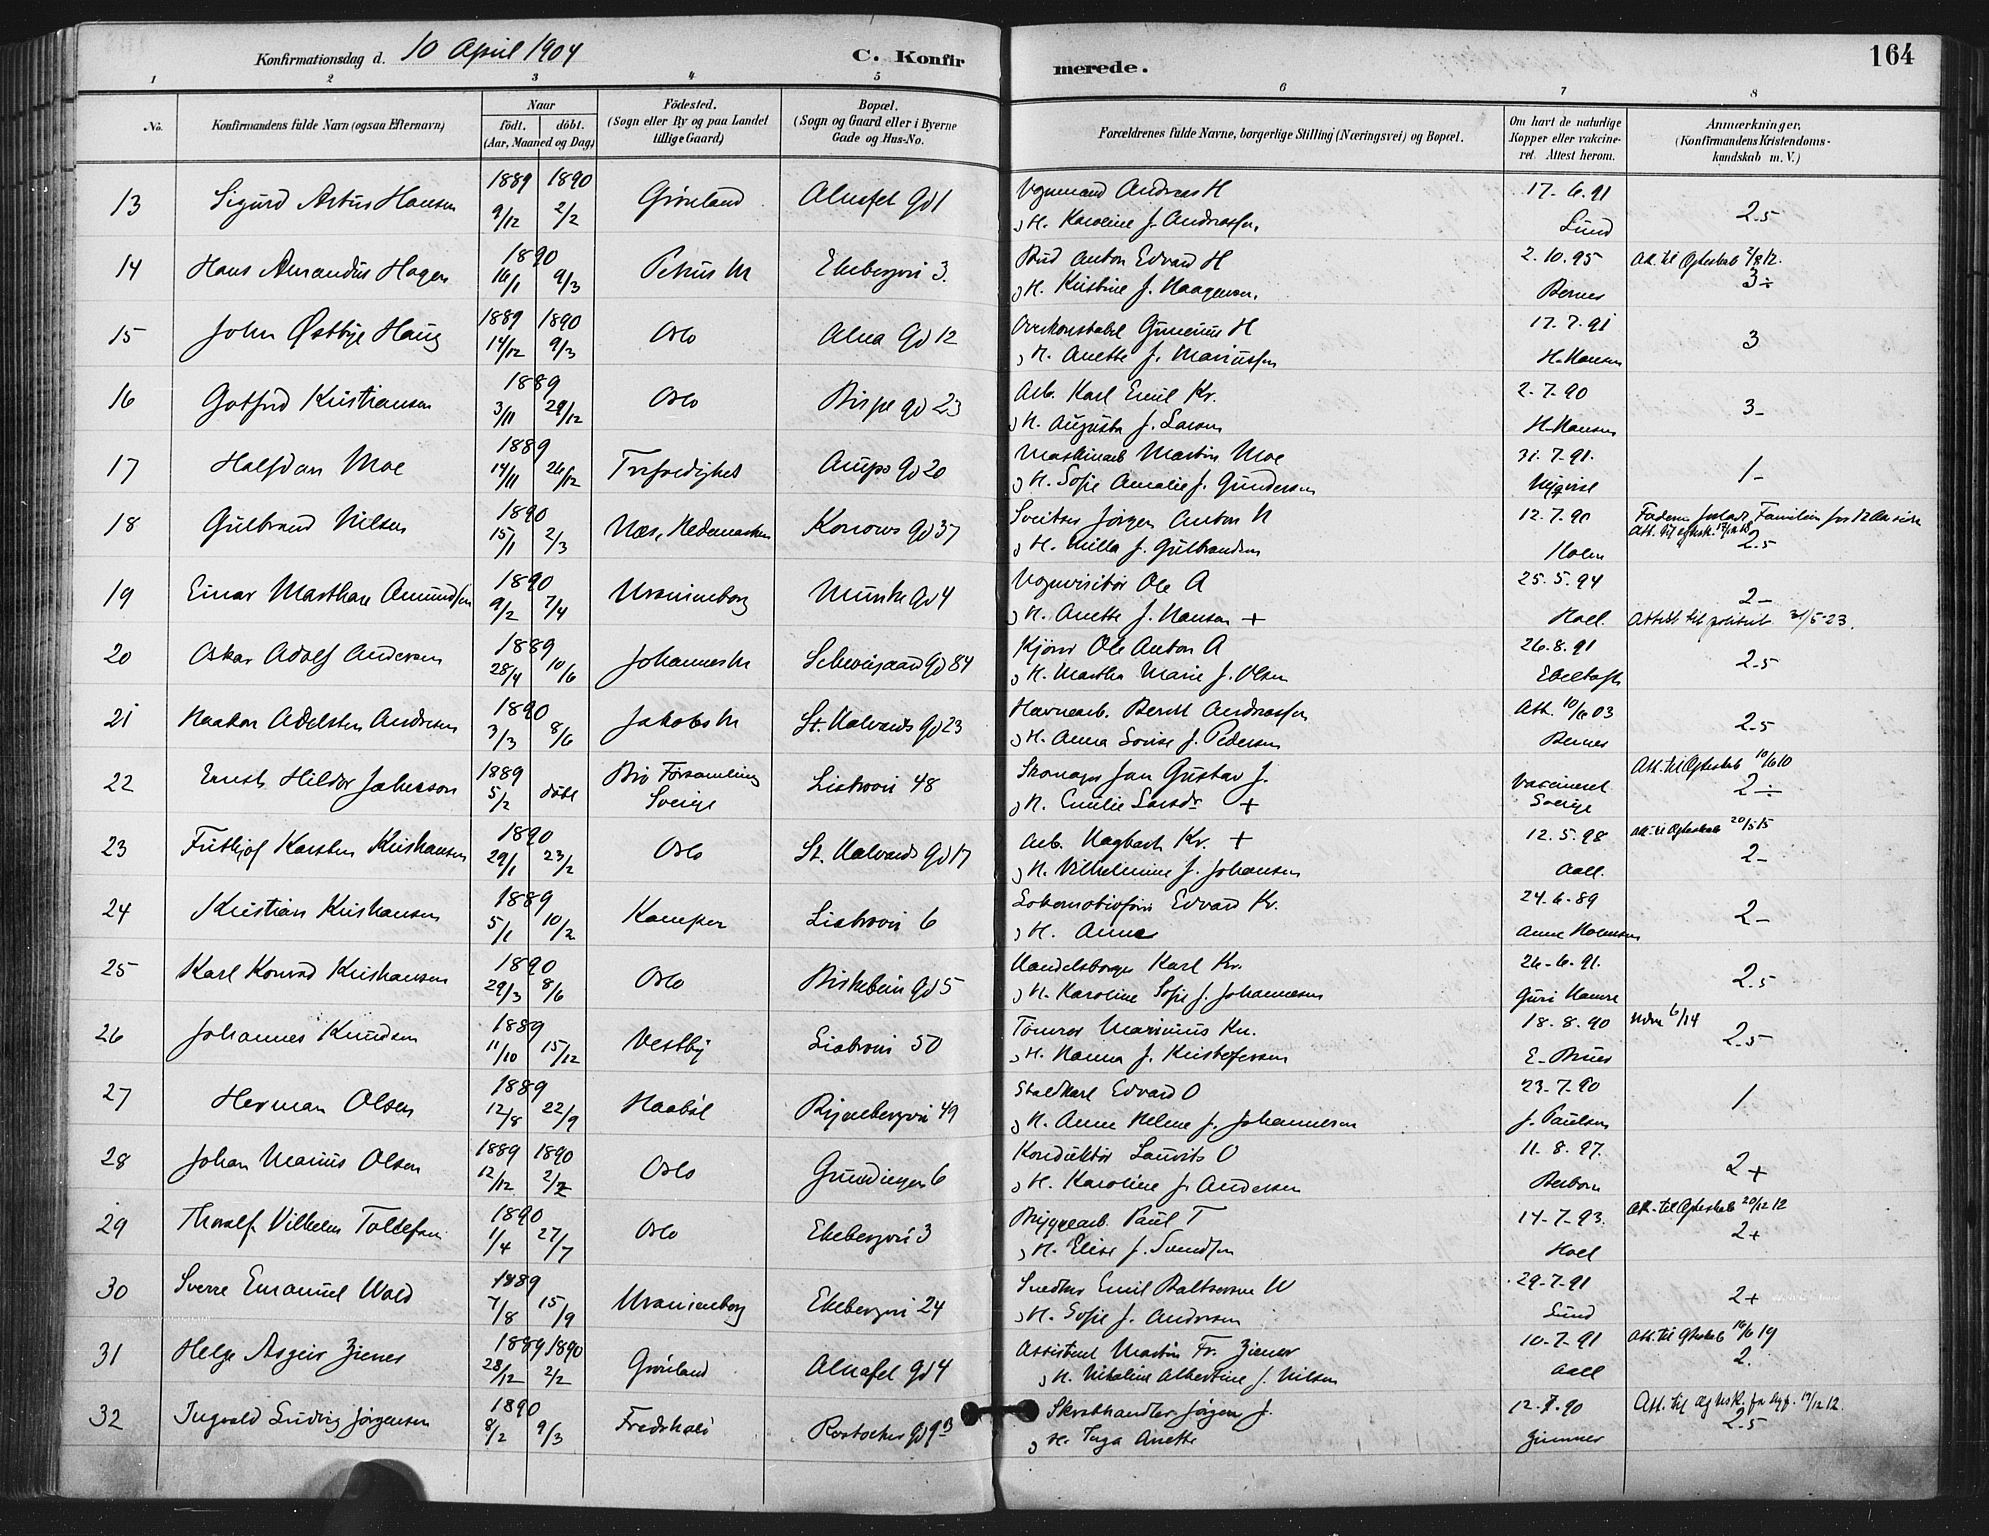 Konfirmationsdag d. 10 April 1904 C. Konfirmerede. 164
1 2 3 4 5 6 7 8
No.
Konfirmandens fulde Navn (ogsaa Efternavn)
Naar
födt. döbt.
(Aar, Maaned og Dag)
Födested.
(Sogn eller By og paa Landet
tillige Gaard)
Bopæl.
(Sogn og Gaard eller i Byerne
Gade og Hus-No.
Forældrenes fulde Navne, borgerlige Stilling (Næringsvei) og Bopæl.
Om havt de naturlige
Kopper eller vakcine-
ret. Attest herom.
Anmærkninger,
(Konfirmandens Kristendoms-
kundskab m. V.)
1889 1890 Vognmand Andreas H 17-6.91
13 Sigurd Artus Hansen 9/12 2/2 Grönland Alnafet Gd 1 2.5
H. Karoline f. Andreassen. Lund
1890 Bud Anton Edvard H 2.10.95 Att. til Ægteskab 2/8 12.
14 Hans Amandus Hagen 16/1 9/3 Petrus M Ekebergvei 3. 3÷
H. Kristine f. Haagensen. Bernes
1889 1890 Overkonstabel Gunerius H 17.7.91
15 John Østbye Haug 14/12 9/3 Oslo Alna Gd 12 3
H. Anette f. Mariussen H. Hansen
1889 Arb. Karl Emil Kr. 2.7.90
16 Gotfred Kristiansen 3/11 29/12 Oslo Bispe gd 23 3-
H. Augusta f. Larsen H. Hansen
1889 Maskinarb Martin Moe 31.7.91.
17 Halfdan Moe 14/11 26/12 Trefoldighet Arups Gd 20 1-
H. Sofie Amalie f. Gundersen Nyqvist
1890 Sveitser Jörgen Anton N 12.7.90
18 Gulbrand Nilsen 15/1 2/3 Næs, Hedemarken Konows gd 37 2.5
H. Milla f. Gulbrandsen Holm
1890 Vognvisitör Ole A 25.5.94
19 Einar Marthan Amundsen 9/2 7/4 Uranienborg Munke gd 4 2-
H. Anette f. Hansen + Hoel. Attest til politiet 31/5-23.
1889 Kjörer Ole Anton A 26.8.91
20 Oskar Adolf Andersen 28/4 10/6 Johannes M Schweigaard Gd 84 2.5
H. Martha Marie f. Olsen Ebeltoft
1890 Havnearb. Bernt Andreassen Att. 10/ 03
21 Haakon Adelsten Andresen 3/3 8/6 Jakobs M St. Halvards gd 23 2.5
H. Anna Lovise f. Pedersen Bernes
1889 Bro Forsamling Skomager Jan Gustav J. Att. til Ægteskab 10/6 10
22 Ernst Hildor Johansson 5/2 döbt Sverige Liabrovei 48 Vaccineret 2÷
H. Emilie Larsdr + Sverige
1890 Arb. Hagbart Kr. + 12.5.98 Att. til Ægteskab 20/5 15
23 Frithjof Karsten Kristiansen 29/1 23/2 Oslo St. Halvards Gd 17 2-
H. Vilhelmine f. Johansen Aall.
1889 Lokomotivförer Edvard Kr. 24.6.89
24 Kristian Kristiansen 5/1 10/2 Kampen Liabrovei 6 2-
H. Anne Anne Holmsen
1890 Handelsborger Karl Kr. 26-6.91.
25 Karl Konrad Kristiansen 29/3 8/6 Oslo Birkebein gd 5 2.5
H. Karoline Sofie f. Johannesen Guri Hamre
1889 Tömrer Marinius Kn. 18.8.90 6/14
26 Johannes Knudsen 11/10 15/12 Vestby Liabrovei 50 2.5
H. Hanna f. Kristofersen E. Bruus
1889 Staldkarl Edvard O 23.7.90
27 Herman Olsen 12/8 22/9 Haaböl Ryenbergvei 49 1
H. Anne Helene f. Johannesen J. Paulsen
1889 1890 Konduktör Lauritz O 11.8.97.
28 Johan Marius Olsen 12/12 2/2 Oslo Grundingen 6 2+
H. Karoline f. Andersen
1890 Bryggearb. Paul T 14-7-93. Att. til Ægteskab 20/12 12
29 Thoralf Vilhelm Tollefsen 1/4 27/7 Oslo Ekebergvei 3 2+
H. Elise f. Svendsen Hoel
1889 Snedker Emil Baltsersen W 29.7.91
30 Sverre Emanuel Wold 7/8 15/9 Uranienborg Ekebergvei 24 2+
H. Sofie f. Andersen Lund
1889 1890 Assistent Martin Fr. Ziener 10.7.91 Att. til Ægteskab 16/6 19
31 Helge Asgeir Zienes 28/12 2/2 Grönland Alnafet gd 4 2.
H. Nikoline Albertine f. Nilsen Aall
1890 Skrabhandler Jörgen J. 12.7.90
32 Ingvald Ludvig Jörgensen 8/2 9/3 Fredshald Rostocker gd 9 B 2.5
H. Inga Anette Zimmer